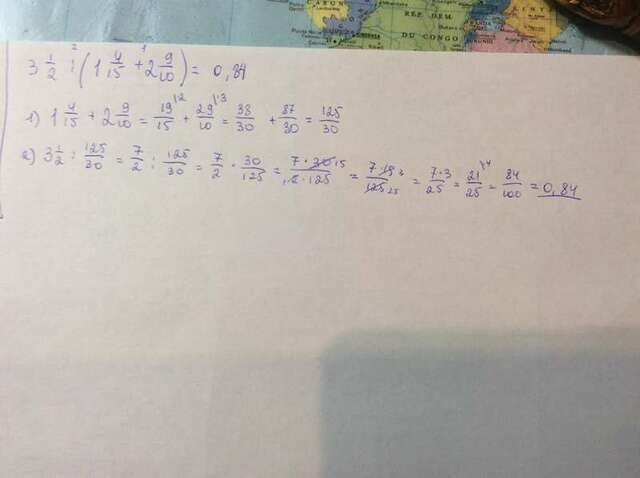 GABON
REP. DEM.
DU CONGO
3 1/2 : (1 4/15 + 2 9/10) = 0,84
1) 1 4/15 + 2 9/10 = 19/15 \2 + 29/10 \3 = 38/30 + 87/30 = 125/30
2) 3 1/2 : 125/30 = 7/2 : 125/30 = 7/2 · 30/125 = 7·30 15/1 2·125 = 7·15 3/125 25 = 7·3/25 = 21/25 \4 = 84/100 = 0,84